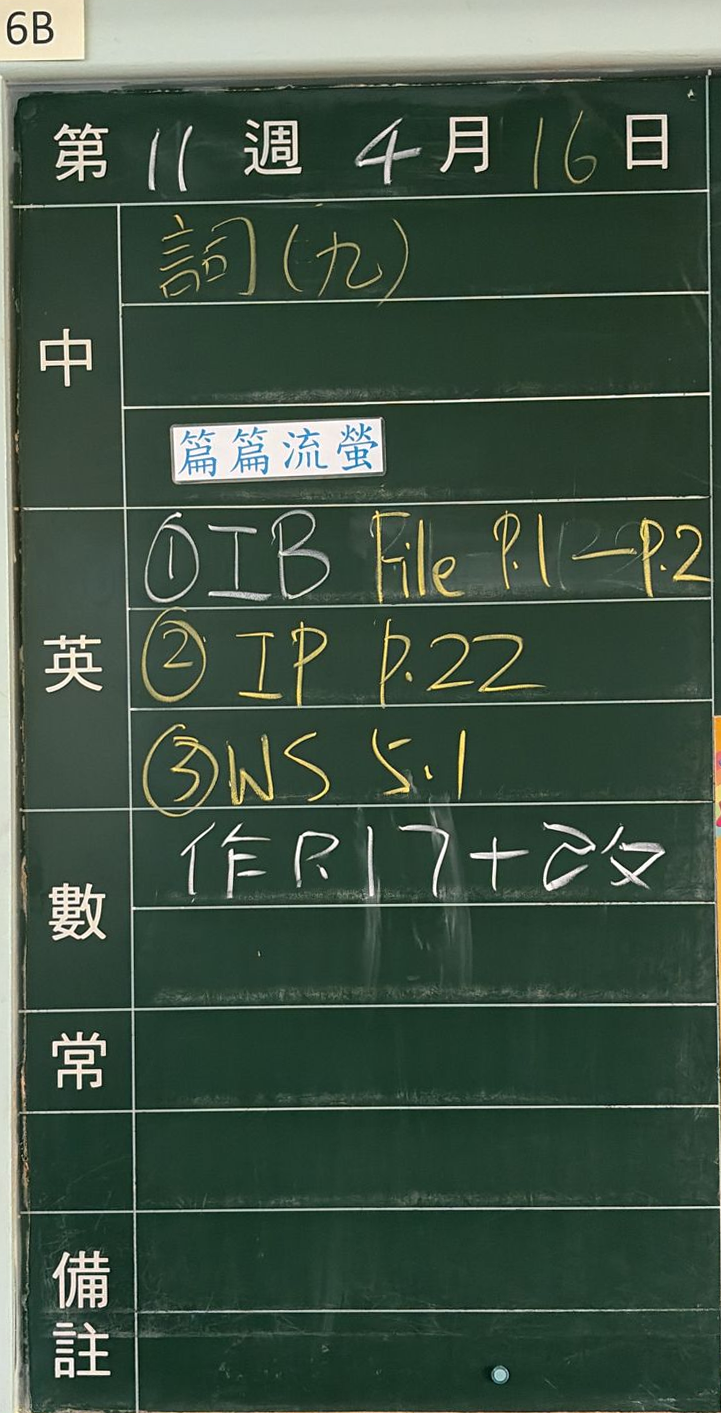 6B
第 11 週 4 月 16 日
中
詞(九)
篇篇流螢
英
①IB File P.1—P.2
② IP P.22
③WS 5.1
數
作P.17+改
常
備註